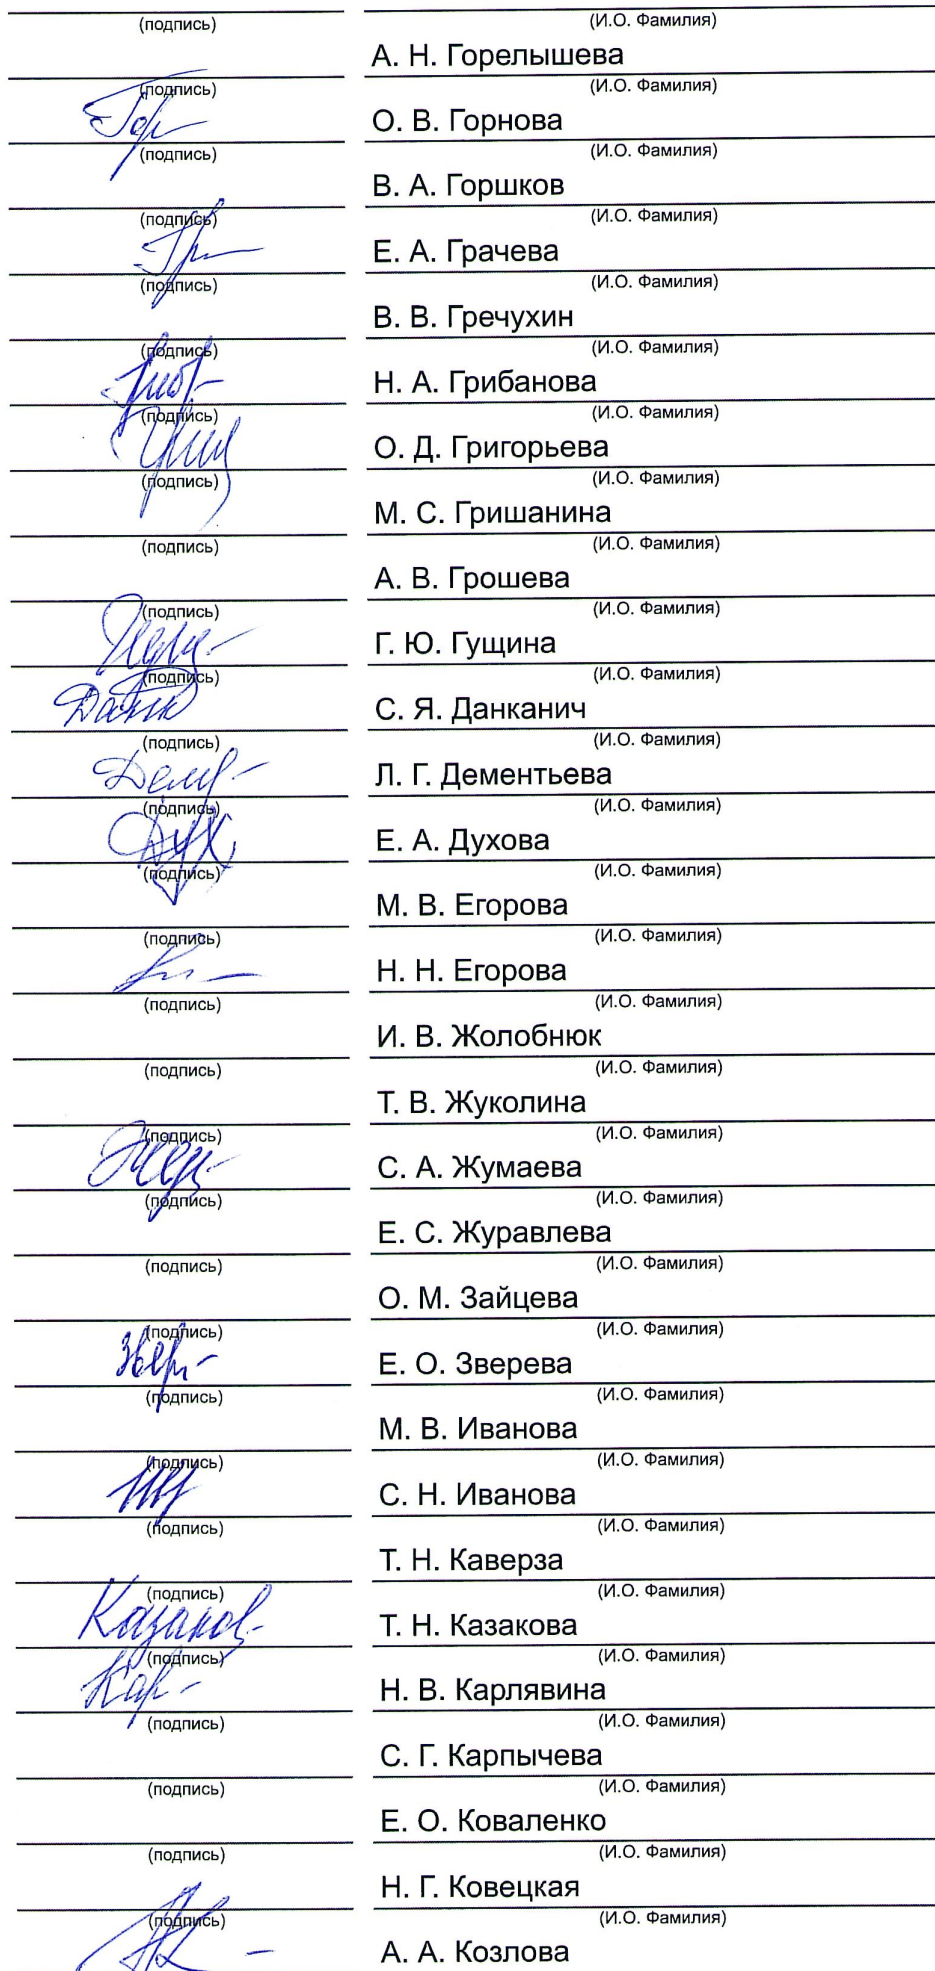 (подпись) (И.О. Фамилия)
А. Н. Горелышева
(подпись) (И.О. Фамилия)
О. В. Горнова
(подпись) (И.О. Фамилия)
В. А. Горшков
(подпись) (И.О. Фамилия)
Е. А. Грачева
(подпись) (И.О. Фамилия)
В. В. Гречухин
(подпись) (И.О. Фамилия)
Н. А. Грибанова
(подпись) (И.О. Фамилия)
О. Д. Григорьева
(подпись) (И.О. Фамилия)
М. С. Гришанина
(подпись) (И.О. Фамилия)
А. В. Грошева
(подпись) (И.О. Фамилия)
Г. Ю. Гущина
(подпись) (И.О. Фамилия)
С. Я. Данканич
(подпись) (И.О. Фамилия)
Л. Г. Дементьева
(подпись) (И.О. Фамилия)
Дух Е. А. Духова
(подпись) (И.О. Фамилия)
М. В. Егорова
(подпись) (И.О. Фамилия)
Н. Н. Егорова
(подпись) (И.О. Фамилия)
И. В. Жолобнюк
(подпись) (И.О. Фамилия)
Т. В. Жуколина
(подпись) (И.О. Фамилия)
С. А. Жумаева
(подпись) (И.О. Фамилия)
Е. С. Журавлева
(подпись) (И.О. Фамилия)
О. М. Зайцева
(подпись) (И.О. Фамилия)
Е. О. Зверева
(подпись) (И.О. Фамилия)
М. В. Иванова
(подпись) (И.О. Фамилия)
С. Н. Иванова
(подпись) (И.О. Фамилия)
Т. Н. Каверза
(подпись) (И.О. Фамилия)
Т. Н. Казакова
(подпись) (И.О. Фамилия)
Кар- Н. В. Карлявина
(подпись) (И.О. Фамилия)
С. Г. Карпычева
(подпись) (И.О. Фамилия)
Е. О. Коваленко
(подпись) (И.О. Фамилия)
Н. Г. Ковецкая
(подпись) (И.О. Фамилия)
А. А. Козлова